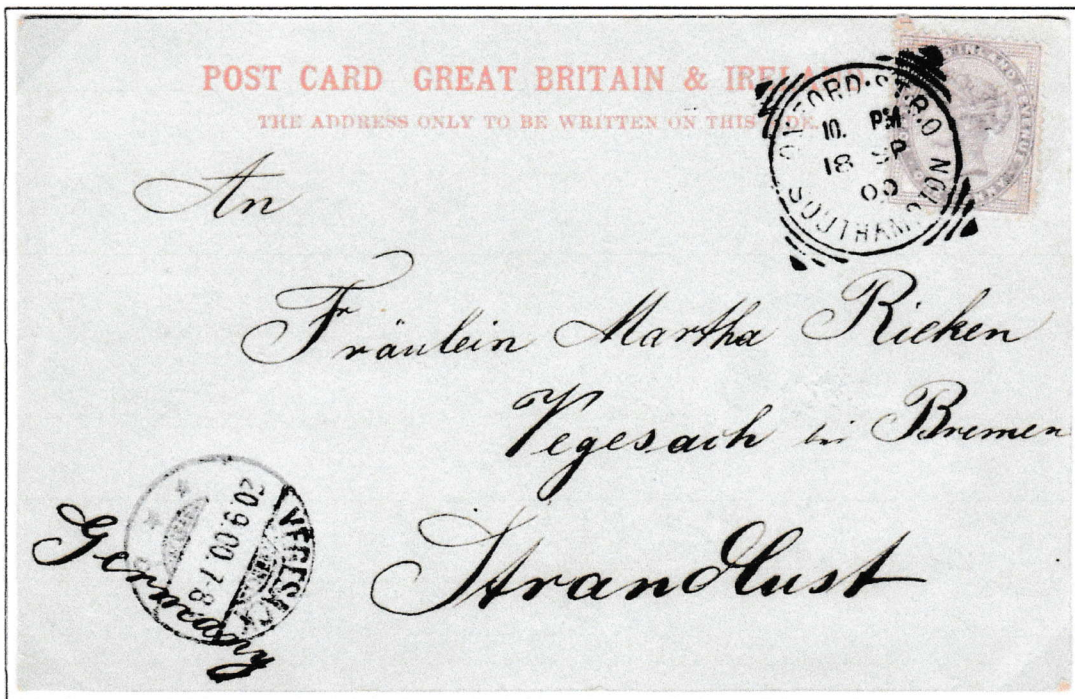 POST CARD GREAT BRITAIN & IRELAND
THE ADDRESS ONLY TO BE WRITTEN ON THIS SIDE.
OXFORD·ST.B.O
SOUTHAMPTON
10. PM
18 SP
00
An
Fräulein Martha Rieken
Vegesack bei Bremen
Strandlust
Germany
VEGESACK
20.9.00.7-8